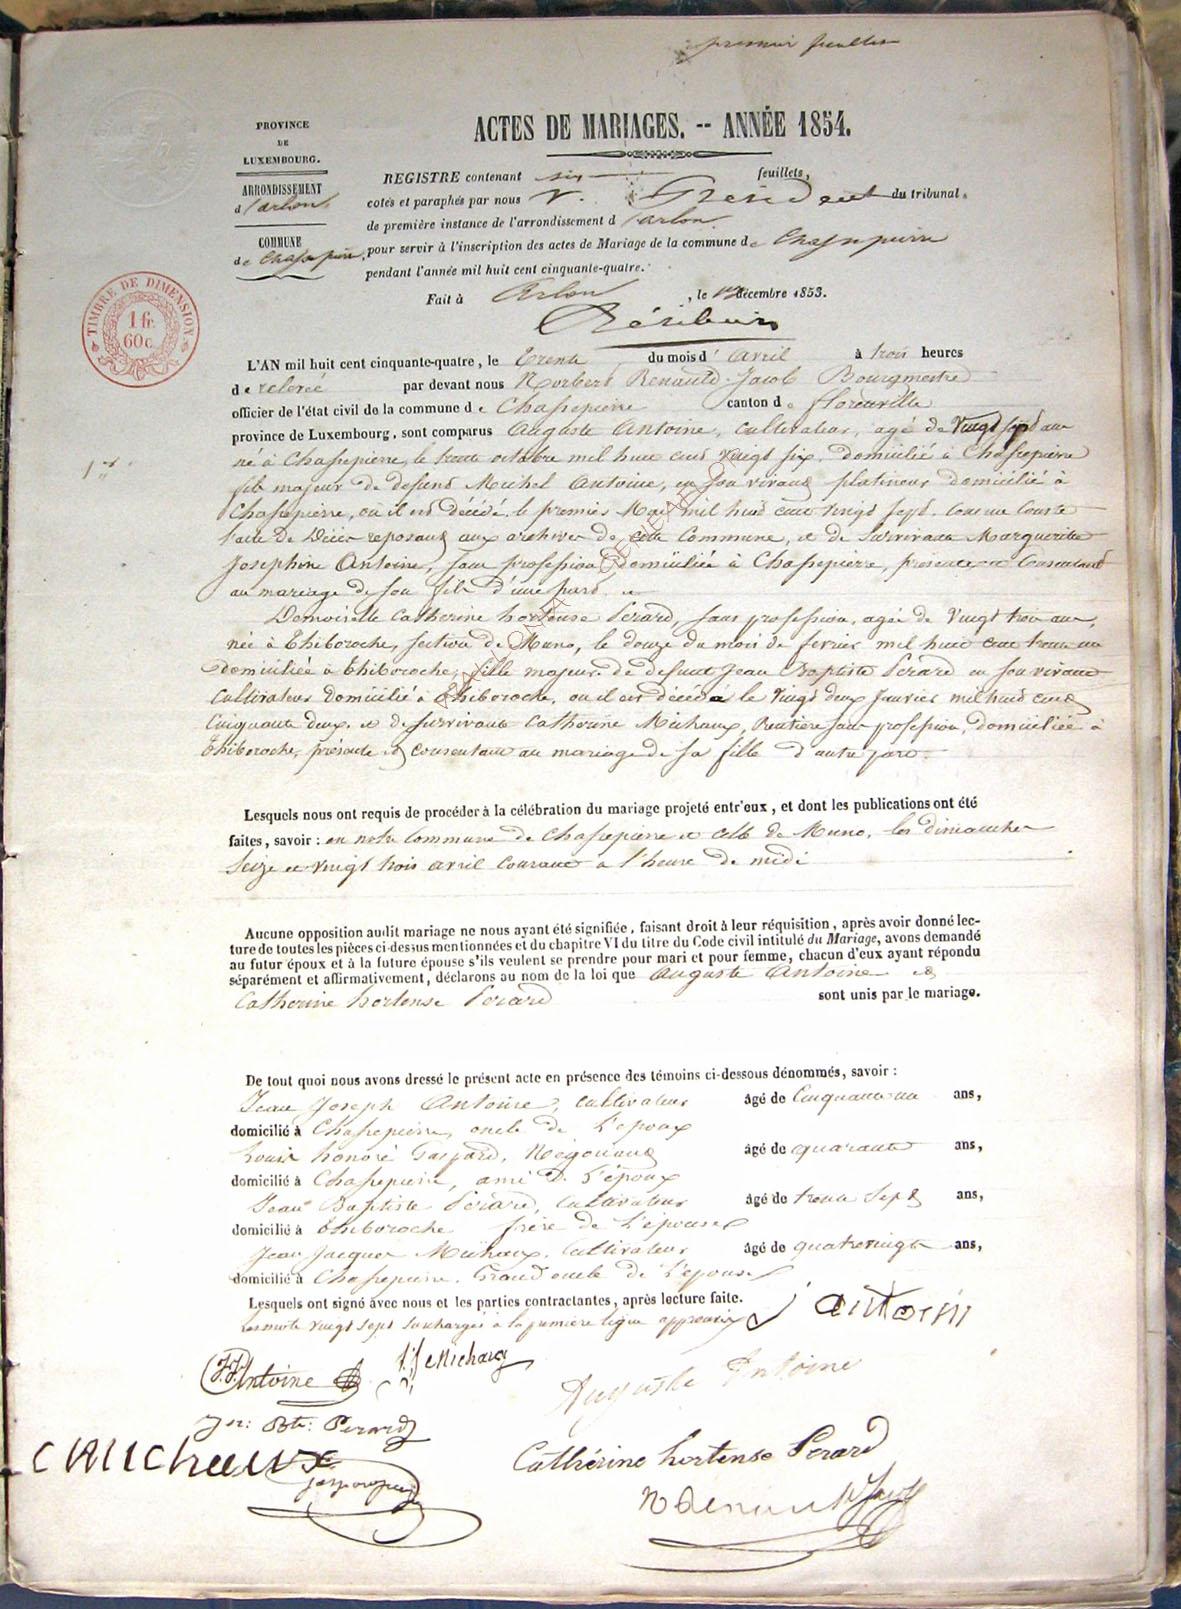 premier feuillet
PROVINCE
DE
LUXEMBOURG.
ARRONDISSEMENT
d'arlon
COMMUNE
de Chassepierre
TIMBRE DE DIMENSION
1 fr.
60 c.
ACTES DE MARIAGES. -- ANNÉE 1854.
REGISTRE contenant six feuillets,
cotés et paraphés par nous V. President du tribunal
de première instance de l'arrondissement d'arlon
pour servir à l'inscription des actes de Mariage de la commune de Chassepierre
pendant l'année mil huit cent cinquante-quatre.
Fait à Arlon, le décembre 1853.
L'AN mil huit cent cinquante-quatre, le trente du mois d'avril à trois heures
de relevée par devant nous Norbert Renauld-Jacob Bourgmestre
officier de l'état civil de la commune de Chassepierre canton de florenville
province de Luxembourg, sont comparus Auguste Antoine, cultivateur, agé de Vingt sept ans
1er
né à Chassepierre, le trente octobre mil huit cent vingt six, domicilié à Chassepierre
fils majeur de defunt Michel Antoine, en son vivant platineur domicilié à
Chassepierre, où il est décédé le premier Mai mil huit cent vingt sept, comme conste
l'acte de Décès reposant aux archives de cette Commune, et de survivante Marguerite
Josephine Antoine, sans profession domiciliée à Chassepierre, présente et Consentant
au mariage de son fils d'une part. et
Demoiselle Catherine hortense Pérard, sans profession, agée de Vingt trois ans,
née à Thiboroche, section de Muno, le douze du mois de fevrier mil huit cent trente un
domiciliée à Thiboroche, fille majeure de defunt Jean Baptiste Pérard en son vivant
Cultivateur domicilié à Thiboroche, où il est décédé le vingt deux Janvier mil huit cent
Cinquante deux, et de survivante Catherine Michaux, Rentière sans profession, domiciliée à
Thiboroche, présente et consentant au mariage de sa fille d'autre part.
Lesquels nous ont requis de procéder à la célébration du mariage projeté entr'eux, et dont les publications ont été
faites, savoir : en notre Commune de Chassepierre et celle de Muno, les dimanches
Seize et vingt trois avril Courant à l'heure de midi
Aucune opposition audit mariage ne nous ayant été signifiée, faisant droit à leur réquisition, après avoir donné lec-
ture de toutes les pièces ci-dessus mentionnées et du chapitre VI du titre du Code civil intitulé du Mariage, avons demandé
au futur époux et à la future épouse s'ils veulent se prendre pour mari et pour femme, chacun d'eux ayant répondu
séparément et affirmativement, déclarons au nom de la loi que Auguste Antoine et
Catherine hortense Pérard sont unis par le mariage.
De tout quoi nous avons dressé le présent acte en présence des témoins ci-dessous dénommés, savoir :
Jean Joseph Antoine, cultivateur âgé de Cinquante un ans,
domicilié à Chassepierre, oncle de l'époux
Louis honoré Gaspard, Négociant âgé de quarante ans,
domicilié à Chassepierre, ami de l'époux
Jean Baptiste Pérard, Cultivateur âgé de trente sept ans,
domicilié à Thiboroche frère de l'épouse
Jean Jacques Michaux, Cultivateur âgé de quatrevingt ans,
domicilié à Chassepierre, Grand oncle de l'épouse
Lesquels ont signé avec nous et les parties contractantes, après lecture faite.
Les mots vingt sept surchargés à la première ligne approuvés
J Antoine
Michaux
Auguste Antoine
Jn: Bte: Perard
C Micheaux
Cathérine hortense Perard
N Renauld Jacob